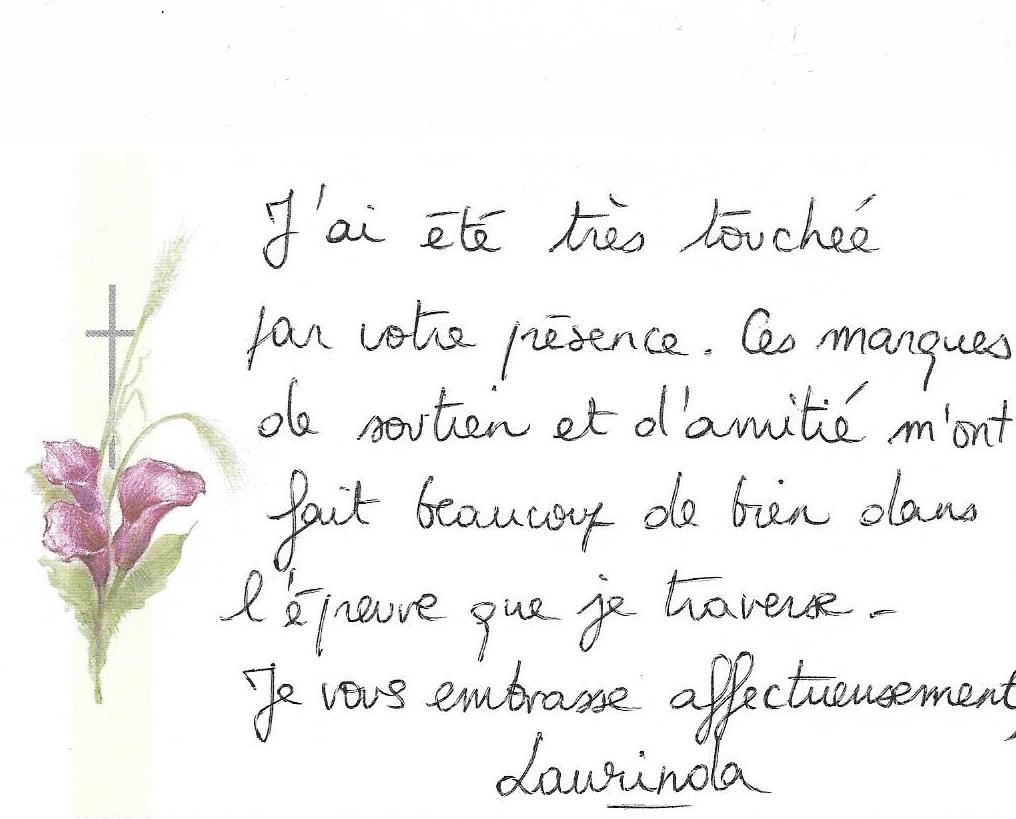 J'ai été très touchée
par votre présence. Ces marques
de soutien et d'amitié m'ont
fait beaucoup de bien dans
l'épreuve que je traverse -
Je vous embrasse affectueusement,
Laurinda